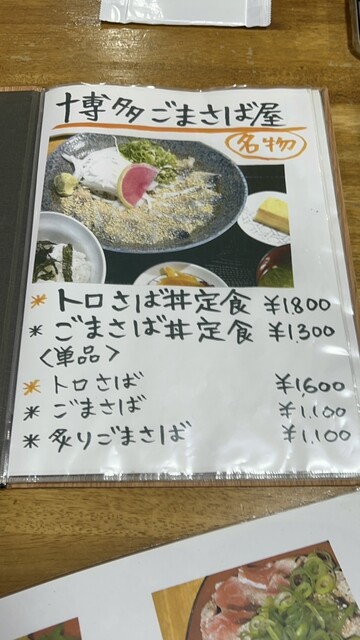 博多ごまさば屋
名物
* トロさば丼定食 ¥1.800
* ごまさば丼定食 ¥1.300
<単品>
* トロさば ¥1,600
* ごまさば ¥1.100
* 炙りごまさば ¥1.100